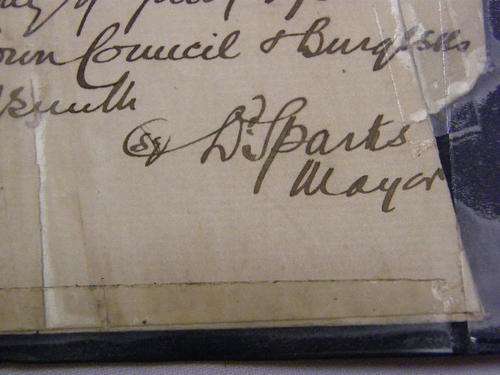 of
own Council & Burgesses
ysmith
(Sg) D. Sparks
Mayor